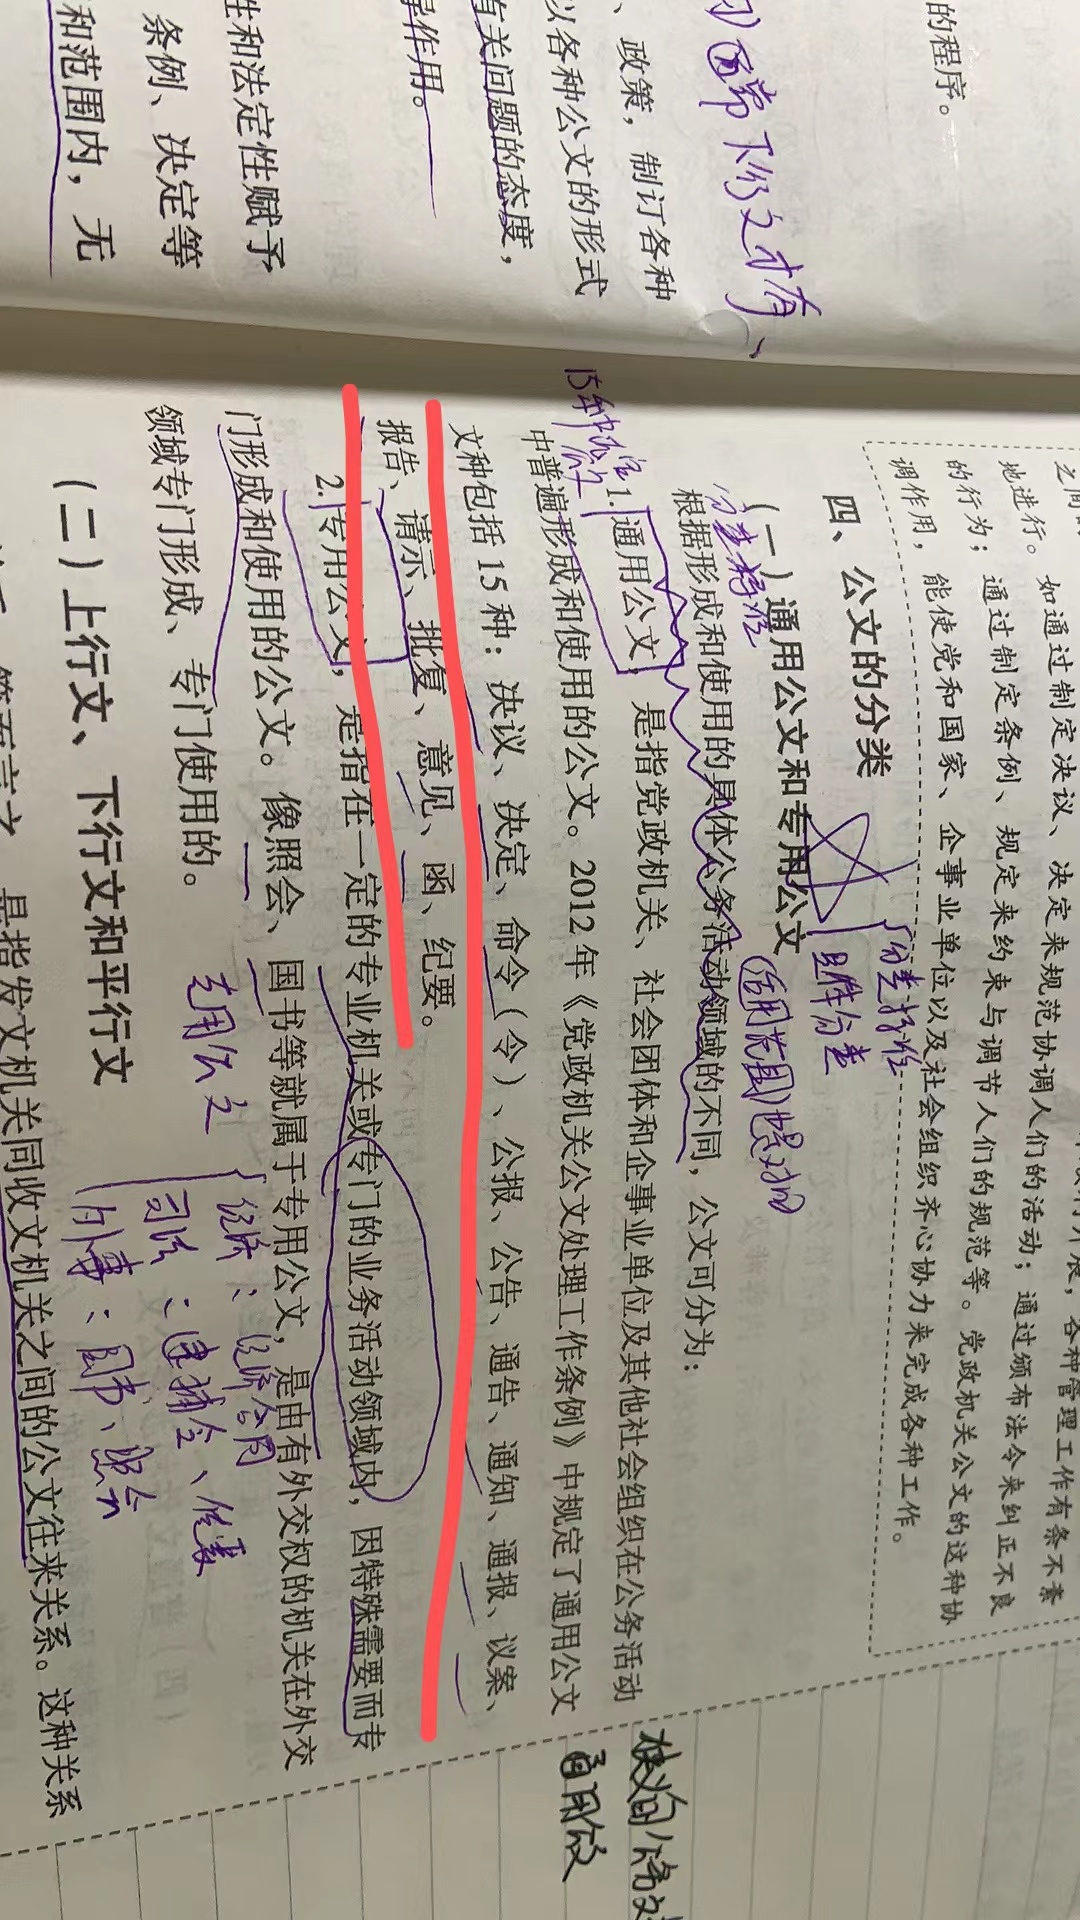 的程序。
、政策，制订各种
以各种公文的形式
有关问题的态度，
导作用。
性和法定性赋予
条例、决定等
和范围内，无
如通过制定决议、决定来规范协调人们的活动；通过颁布法令来纠正不良
地进行。
的行为；通过制定条例、规定来约束与调节人们的规范等。党政机关公文的这种协
调作用，能使党和国家、企事业单位以及社会组织齐心协力来完成各种工作。
四、公文的分类
分类标准
(一)通用公文和专用公文
分类标准
根据形成和使用的具体公务活动领域的不同，公文可分为：
15种法定
1.通用公文，是指党政机关、社会团体和企事业单位及其他社会组织在公务活动
中普遍形成和使用的公文。2012年《党政机关公文处理工作条例》中规定了通用公文
文种包括15种：决议、决定、命令(令)、公报、公告、通告、通知、通报、议案、
报告、请示、批复、意见、函、纪要。
2.专用公文，是指在一定的专业机关或专门的业务活动领域内，因特殊需要而专
门形成和使用的公文。像照会、国书等就属于专用公文，是由有外交权的机关在外交
领域专门形成、专门使用的。
专用公文
经济：经济合同
司法：逮捕令、传票
外事：国书、照会
(二)上行文、下行文和平行文
是指发文机关同收文机关之间的公文往来关系。这种关系